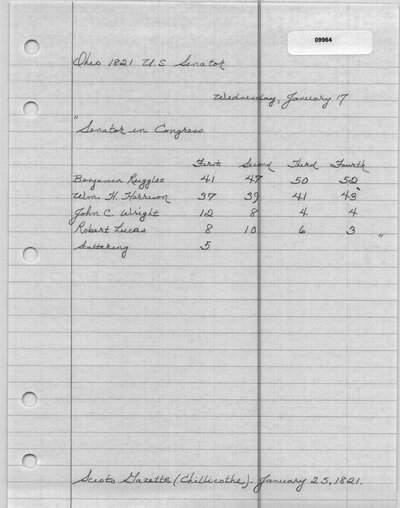 09964
Ohio 1821 U.S Senator
Wednesday, January 17
"Senator in Congress
First Second Third Fourth
Benjamin Ruggles 41 47 50 52
Wm. H. Harrison 37 39 41 43
John C. Wright 12 8 4 4
Robert Lucas 8 10 6 3 "
scattering 5
Scioto Gazette (Chillicothe). January 25, 1821.